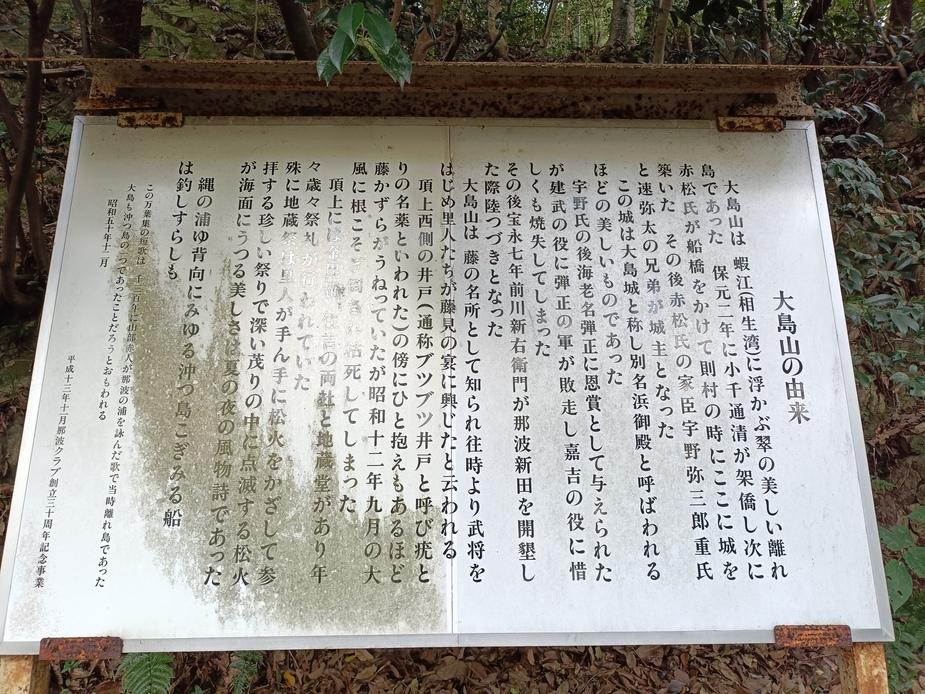 大島山の由来
大島山は 蝦江(相生湾)に浮かぶ翠の美しい離れ
島であった 保元二年に小千通清が架僑し次に
赤松氏が船橋をかけて則村の時にここに城を
築いた その後赤松氏の家臣宇野弥三郎重氏
と速弥太の兄弟が城主となった
この城は大島城と称し別名浜御殿と呼ばわれる
ほどの美しいものであった
宇野氏の後海老名弾正に恩賞として与えられた
が建武の役に弾正の軍が敗走し嘉吉の役に惜
しくも焼失してしまった
その後宝永七年前川新右衛門が那波新田を開墾し
た際陸つづきとなった
大島山は 藤の名所として知られ往時より武将を
はじめ里人たちが藤見の宴に興じたと云われる
頂上西側の井戸(通称ブツブツ井戸と呼び疣と
りの名薬といわれた)の傍にひと抱えもあるほど
藤かずらがうねっていたが昭和十二年九月の大
風に根こそぎ され枯死してしまった
頂上には の両社と地蔵堂があり年
々歳々祭礼が行われていた
殊に地蔵祭は里人が手ん手に松火をかざして参
拝する珍しい祭りで深い茂りの中に点滅する松火
が海面にうつる美しさは夏の夜の風物詩であった
縄の浦ゆ背向にみゆる沖つ島こぎみる船
は釣しすらしも
この万葉集の短歌は 千二百年前に山部赤人が那波の浦を詠んだ歌で当時離れ島であった
大島も沖つ島の一つであったことだろうとおもわれる
昭和五十年十二月
平成十三年十二月那波クラブ創立三十周年記念事業